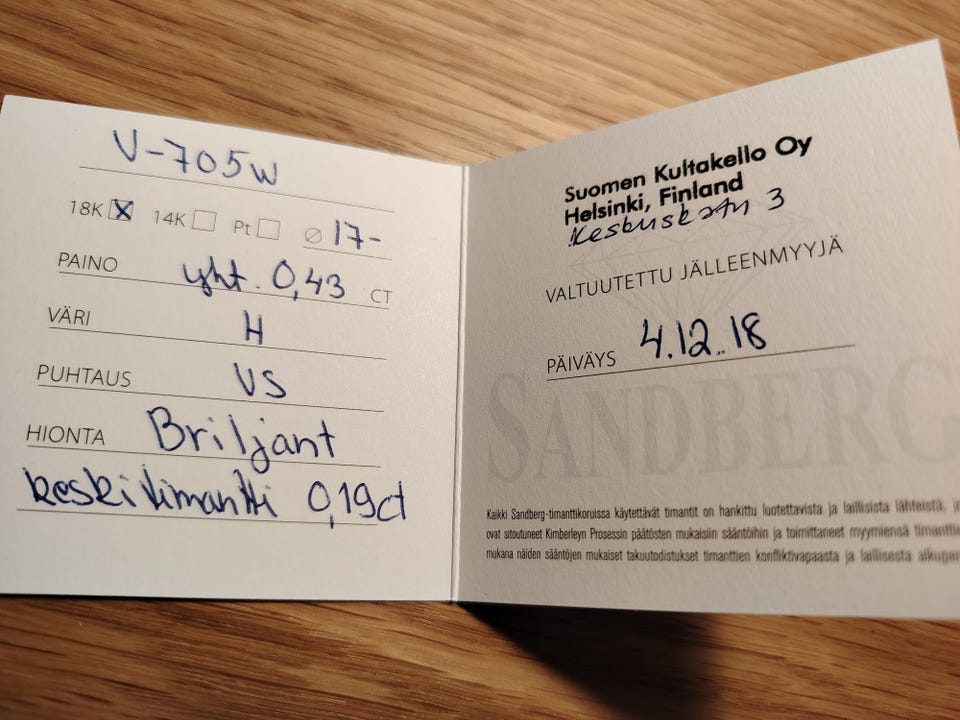 V-705W
18K ☒ 14K ☐ Pt ☐ ∅ 17-
PAINO yht. 0,43 CT
VÄRI H
PUHTAUS VS
HIONTA Briljant
keskitimantti 0,19ct
Suomen Kultakello Oy
Helsinki, Finland
Keskuskatu 3
VALTUUTETTU JÄLLEENMYYJÄ
PÄIVÄYS 4.12.18
SANDBERG
Kaikki Sandberg-timanttikoruissa käytettävät timantit on hankittu luotettavista ja laillisista lähteistä,
ovat sitoutuneet Kimberleyn Prosessin päätösten mukaisiin sääntöihin ja toimittaneet myymiensä
mukana näiden sääntöjen mukaiset takuutodistukset timanttien konfliktivapaasta ja laillisesta